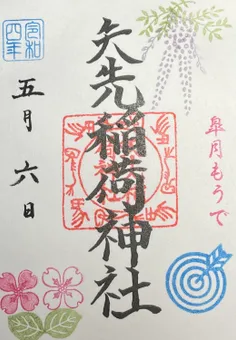 皐月もうで
矢先稲荷神社
令和四年
五月六日